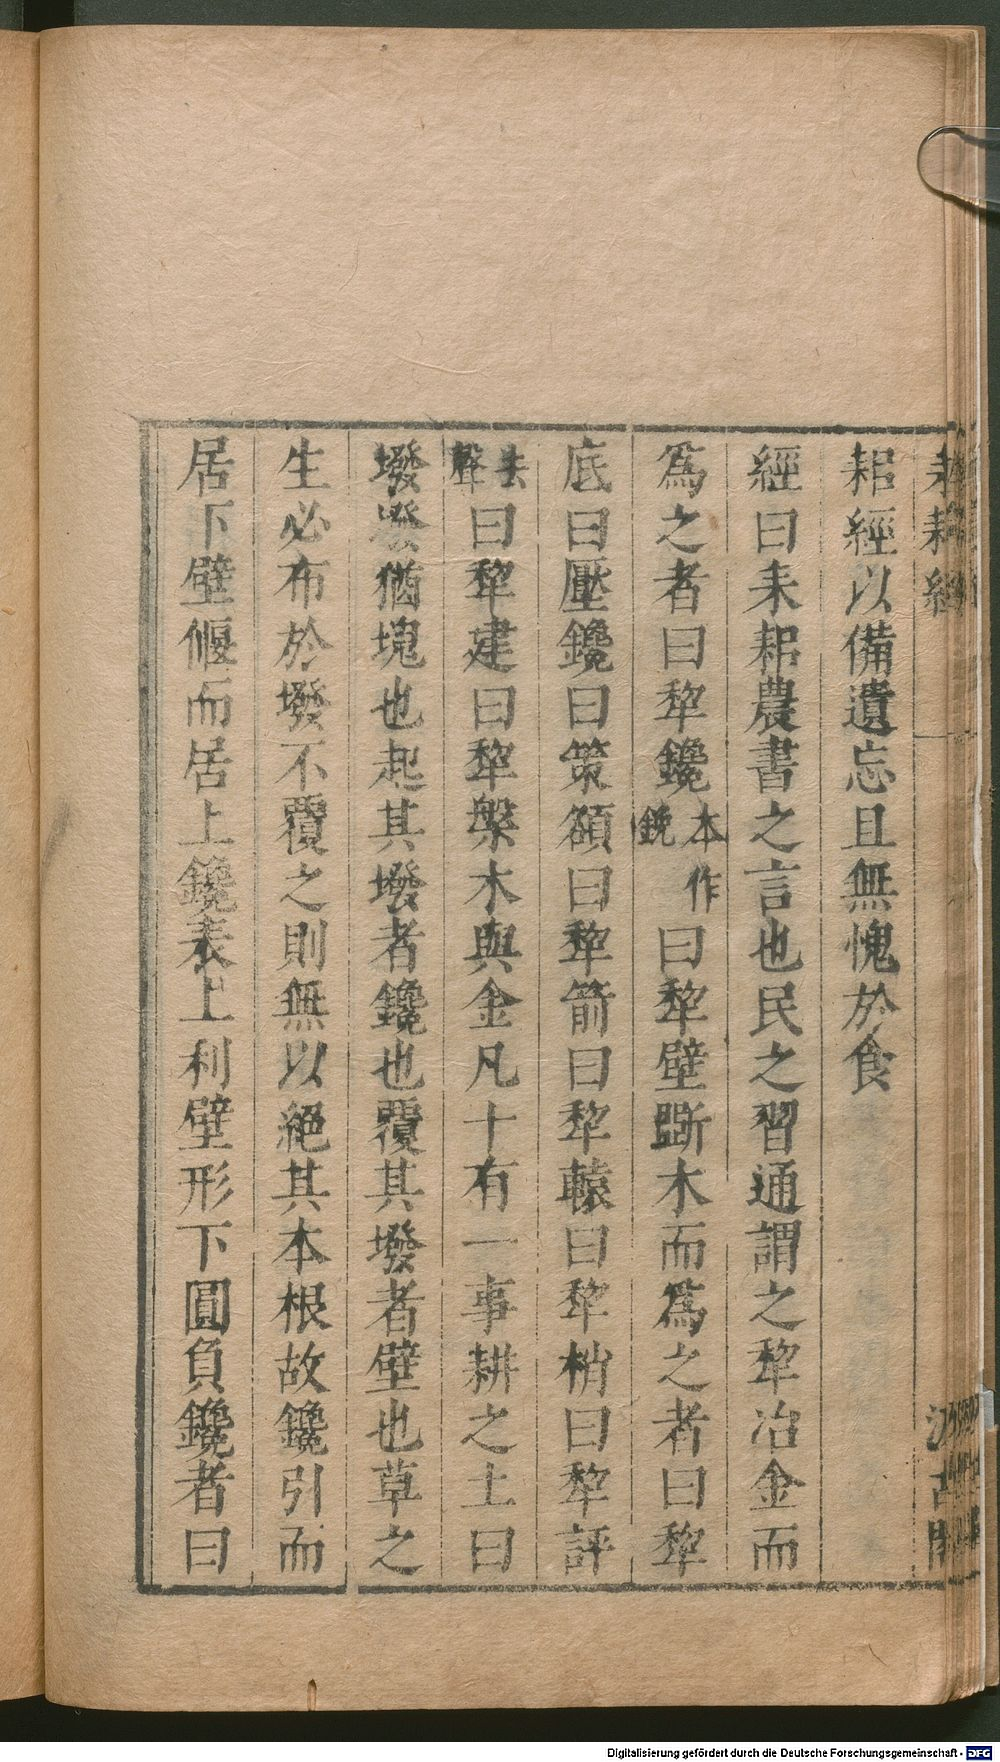 耒耜經
汲古閣
耜經以備遺忘且無愧於食
經曰耒耜農書之言也民之習通謂之犂冶金而
爲之者曰犂鑱本作鋔曰犂壁斲木而爲之者曰犂
底曰壓鑱曰策額曰犂箭曰犂轅曰犂梢曰犂評
去聲曰犂建曰犂槃木與金凡十有一事耕之土曰
墢墢猶塊也起其墢者鑱也覆其墢者壁也草之
生必布於墢不覆之則無以絕其本根故鑱引而
居下壁偃而居上鑱表上利壁形下圓負鑱者曰
Digitalisierung gefördert durch die Deutsche Forschungsgemeinschaft - DFG